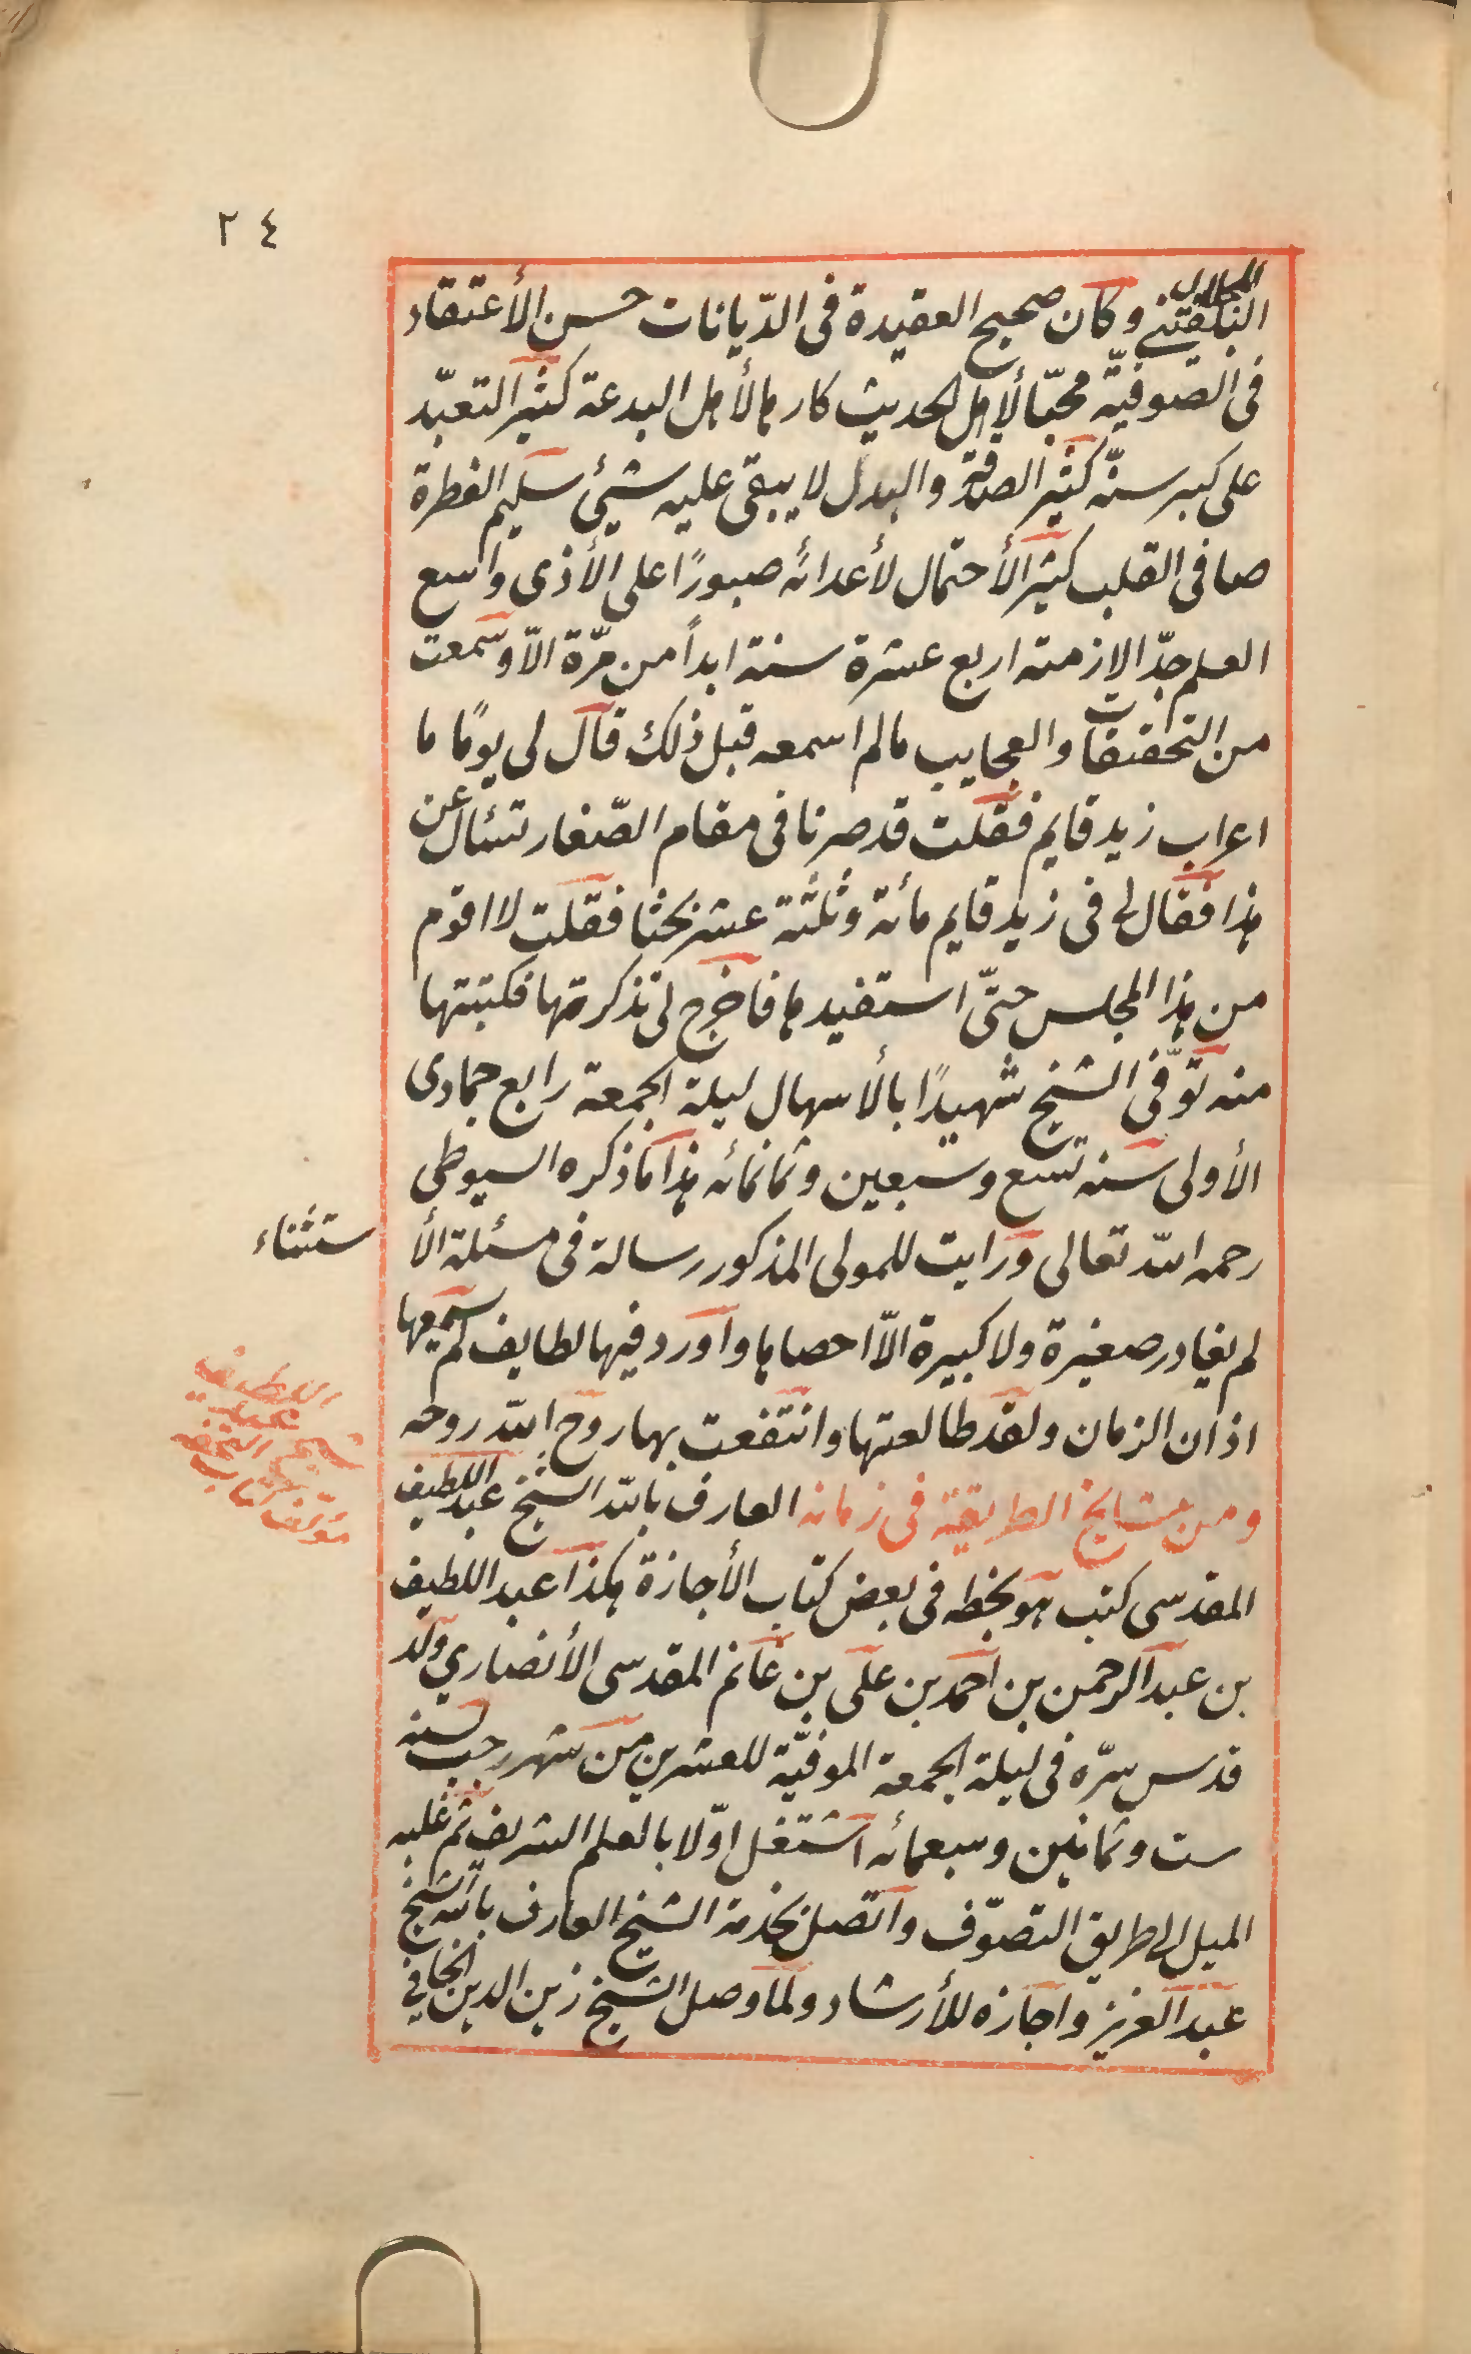 ٢٤
الجلال
البلقيني وكان صحيح العقيدة فى الدّيانات حسن الأعتقاد
فى الصّوفيّة محبّا لأهل الحديث كارها لأهل البدعة كثير التعبّد
على كبر سنّه كثير الصدقة والبذل لا يبقى عليه شيئ سليم الفطرة
صافى القلب كثير الأحتمال لأعدائه صبورًا على الأذى واسع
العلم جدّا لازمته اربع عشرة سنة ابداً من مرّة الاّ وسمعت
من التحقيقات والعجايب مالم اسمعه قبل ذلك قال لى يومًا ما
اعراب زيد قايم فقلت قد صرنا فى مقام الصّغار نسئال عن
هذا فقال لى فى زيد قايم مائة وثلثة عشر بحثا فقلت لا اقوم
من هذا المجلس حتّى استفيدها فاخرج لى تذكرتها فكتبتها
منه توّفى الشيخ شهيدًا بالأسهال ليلة الجمعة رابع جمادى
الأولى سنه تسع وسبعين وثمانمائه هذا ماذكره السيوطى
رحمه الله تعالى ورايت للمولى المذكور رسالة فى مسئلة الأ
ستثناء
لم يغادر صغيرة ولا كبيرة الاّ احصاها واورد فيها لطايف لم يسمعها
اذان الزمان ولقد طالعتها وانتفعت بها روح الله روحه
ومن مشايخ الطريقة فى زمانه العارف بالله الشيخ عبد اللطيف
المقدسى كتب هو بخطه فى بعض كتاب الأجازة هكذا عبد اللطيف
بن عبد الرحمن بن احمد بن على بن غانم المقدسى الأنصاري ولد
قدس سرّه فى ليلة الجمعة الموفيّة للعشرين من شهر رجب سنه
ست وثمانين وسبعمائه اشتغل اوّلا بالعلم الشريف ثم غلبه
الميل الى طريق التصوّف واتّصل بخدمة الشيخ العارف بالله الشيخ
عبد العزيز واجازه للأرشاد ولما وصل الشيخ زين الدين الخافى